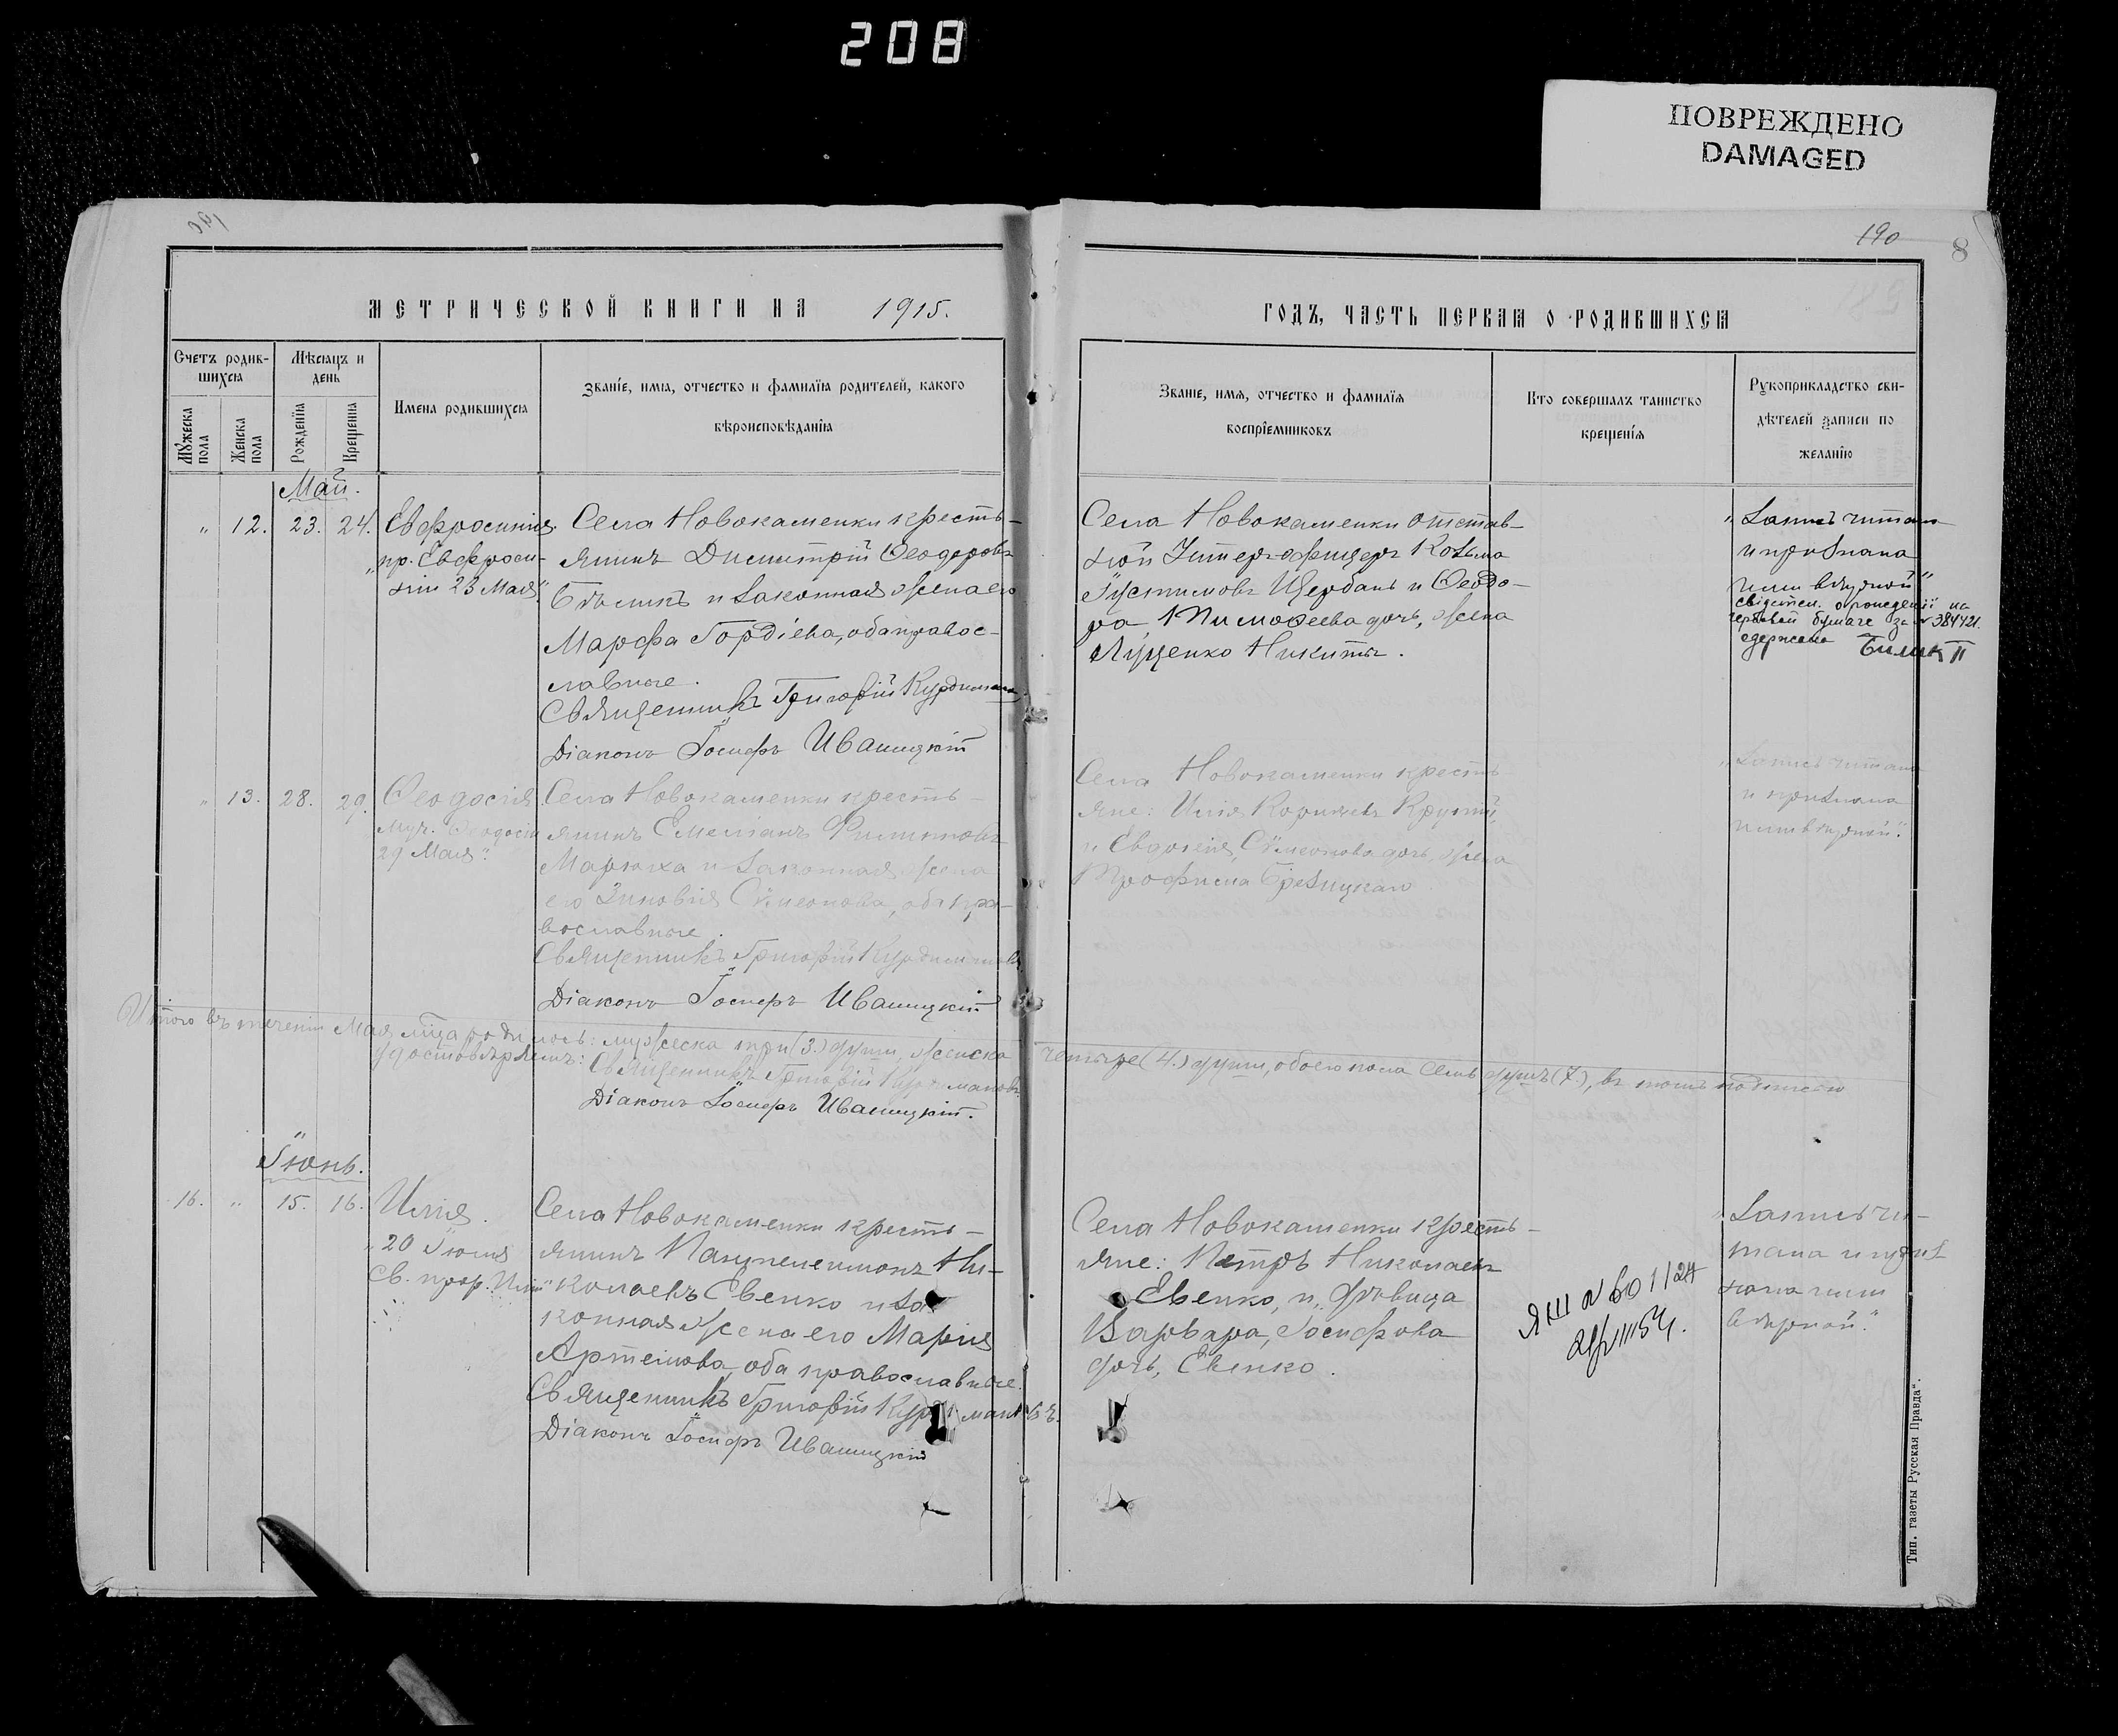 208
ПОВРЕЖДЕНО
DAMAGED
190
8
МЕТРИЧЕСКОЙ КНИГИ НА 1915.
ГОДЪ, ЧАСТЬ ПЕРВАЯ О РОДИВШИХСЯ
Счетъ родив-
шихся
Мѣсяцъ и
день
Мужеска
пола
Женска
пола
Рожденія
Крещенія
Имена родившихся
Званіе, имя, отчество и фамилія родителей, какого
вѣроисповѣданія
Званіе, имя, отчество и фамилія
воспріемниковъ
Кто совершалъ таинство
крещенія
Рукоприкладство сви-
дѣтелей записи по
желанію
Май.
„ 12. 23. 24.
Евфросинія.
„пр. Евфроси-
ніи 23 Мая“.
Села Новокаменки кресть-
янинъ Димитрій Ѳеодоровъ
Бѣликъ и законная жена его
Марѳа Гордіева, оба правос-
лавные.
Священникъ Григорій Курдимановъ
Діаконъ Іосифъ Иваницкій
Села Новокаменки отстав-
ной Унтеръ-офицеръ Козьма
Іустиновъ Щербань и Ѳеодо-
ра Тимоѳеева дочь, жена
Луценко Никиты.
„Запись читана
и признана
ими вѣрной“
свідотсв.
на
гербовій бумаге за № 384421.
одержала Билик П
„ 13. 28. 29.
Ѳеодосія
Муч. Ѳеодосіи
29 Мая“.
Села Новокаменки кресть-
янинъ Емеліанъ Филипповъ
Марюха и законная жена
его Зиновія Сѵмеонова, оба пра-
вославные.
Священникъ Григорій Курдимановъ
Діаконъ Іосифъ Иваницкій
Села Новокаменки кресть-
яне: Илія Крутій,
и Евдокія, Сѵмеонова дочь, жена
Трофима
„Запись читана
и признана
ими вѣрной“.
Итого въ теченіи Мая мѣсяца родилось: мужеска три (3.) души, женска четыре (4.) души, обоего пола семь душъ (7.), въ томъ подписомъ
удостовѣряемъ: Священникъ Григорій Курдимановъ.
Діаконъ Іосифъ Иваницкій.
Іюнь.
16. „ 15. 16.
Илія.
„20 Іюля
Св. прор. Иліи“
Села Новокаменки кресть-
янинъ Пантелеимонъ Ни-
колаевъ Евенко и за-
конная жена его Марія
Артемова, оба православные.
Священникъ Григорій Курдимановъ.
Діаконъ Іосифъ Иваницкій
Села Новокаменки кресть-
яне: Петръ Николаевъ
Евенко, и дѣвица
Варвара, Іосифова
дочь, Евенко.
„Запись чи-
тана и приз
нана ими
вѣрной“.
Тип. газеты Русская Правда“.